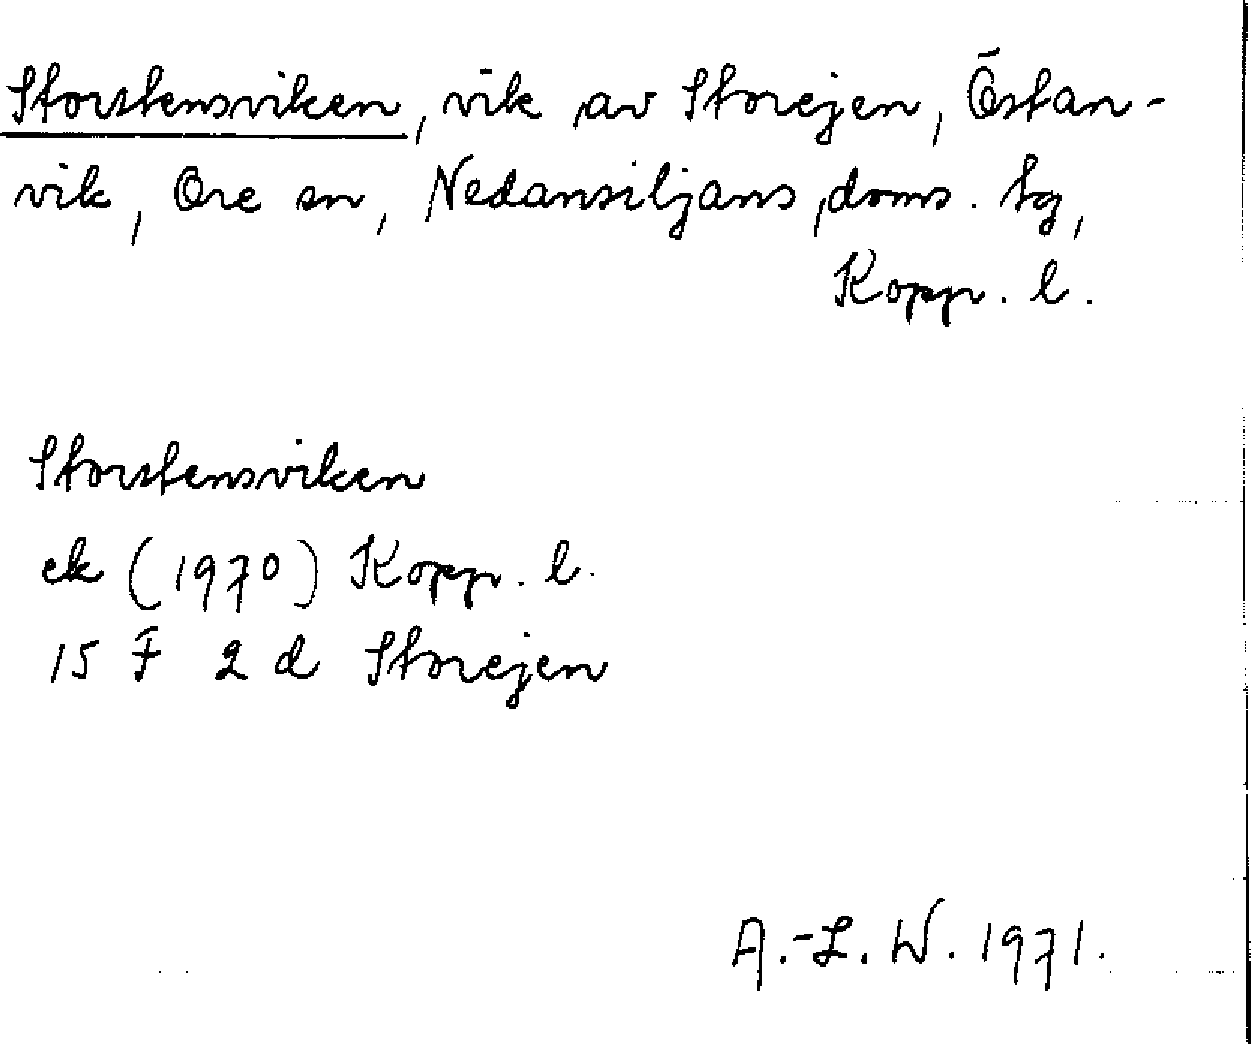 Storstensviken, vik av Storejen, Östan-
vik, Ore sn, Nedansiljans doms. tg,
Kopp. l.
Storstensviken
ek (1970) Kopp. l.
15 F 2 d Storejen
A.-L. W. 1971.